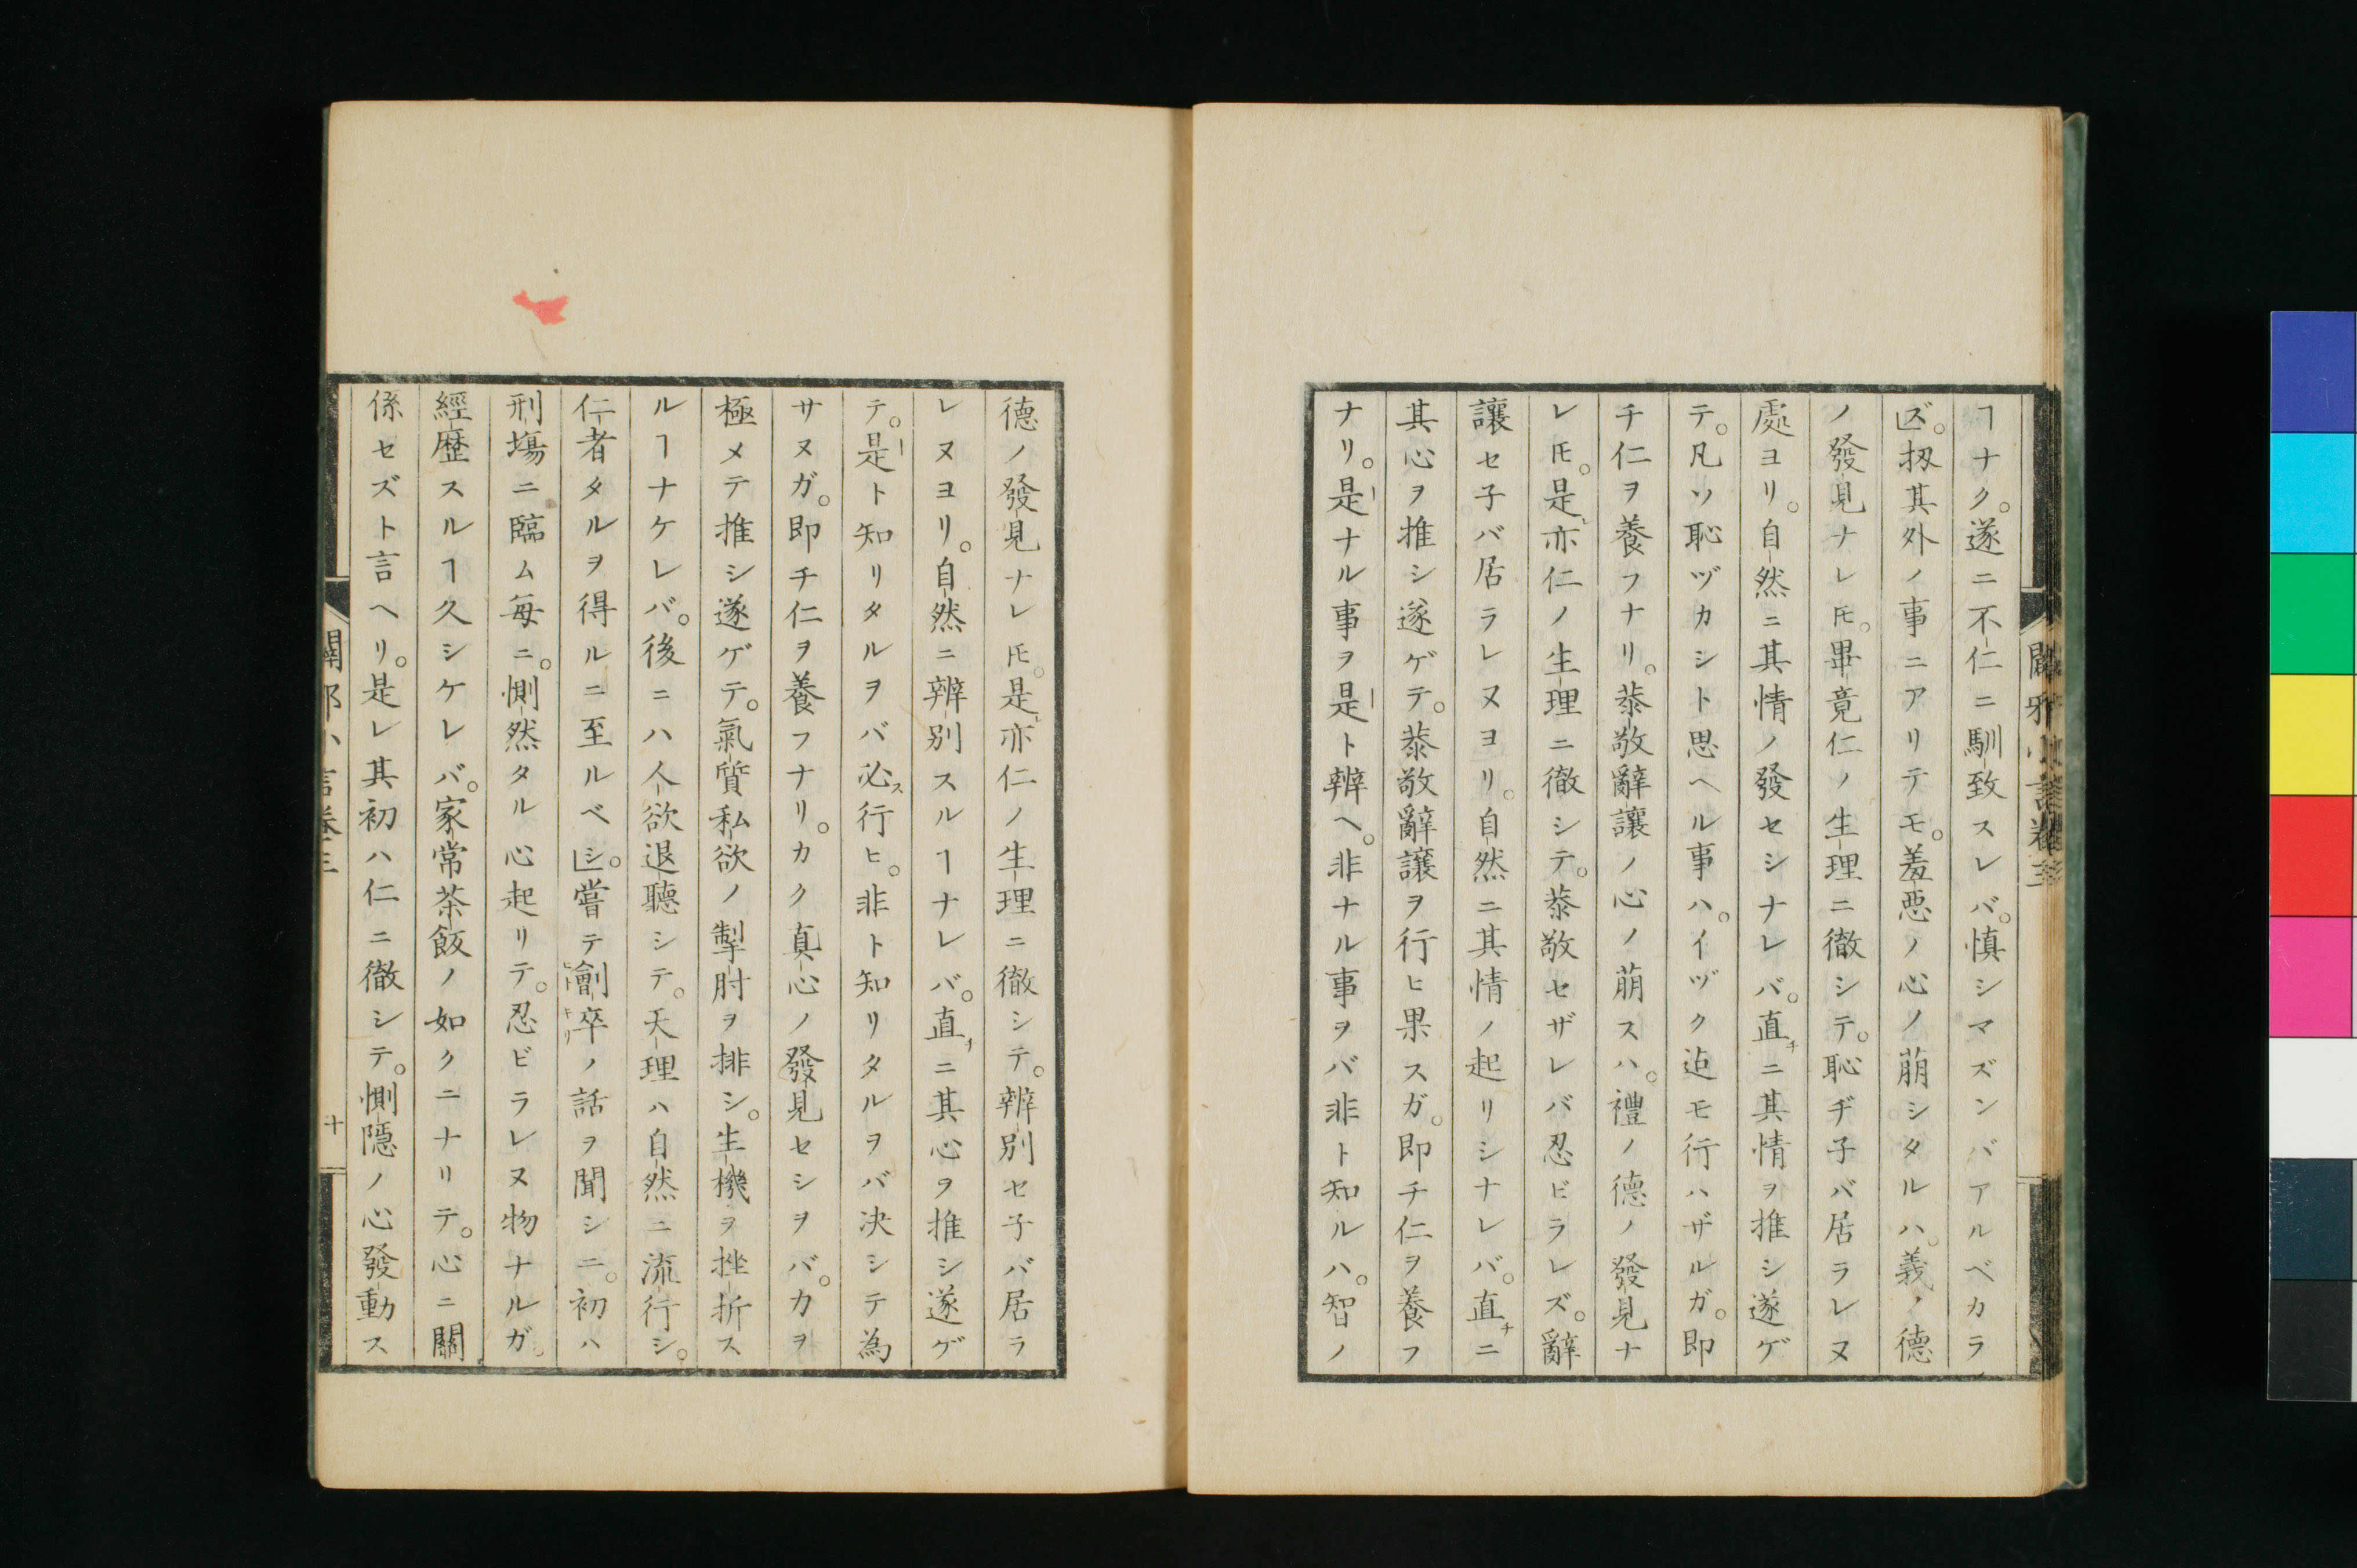 ヿナク。遂ニ不仁ニ馴致スレバ。慎シマズンバアルベカラ
ズ。扨其外ノ事ニアリテモ。羞悪ノ心ノ萠シタルハ。義ノ德
ノ發見ナレ𪜈。畢竟仁ノ生理ニ徹シテ。恥ヂ子バ居ラレヌ
處ヨリ。自然ニ其情ノ發セシナレバ。直チニ其情ヲ推シ遂ゲ
テ。凡ソ恥ヅカシト思ヘル事ハ。イヅク迠モ行ハザルガ。即
チ仁ヲ養フナリ。𢙇敬辭讓ノ心ノ萠スハ。禮ノ德ノ發見ナ
レ𪜈。是亦仁ノ生理ニ徹シテ。𢙇敬セザレバ忍ビラレズ。辭
讓セ子バ居ラレヌヨリ。自然ニ其情ノ起リシナレバ。直チニ
其心ヲ推シ遂ゲテ。𢙇敬辭讓ヲ行ヒ果スガ。即チ仁ヲ養フ
ナリ。是ナル事ヲ是ト辨ヘ。非ナル事ヲバ非ト知ルハ。智ノ
德ノ發見ナレ𪜈。是亦仁ノ生理ニ徹シテ。辨別セ子バ居ラ
レヌヨリ。自然ニ辨別スルヿナレバ。直チニ其心ヲ推シ遂ゲ
テ。是ト知リタルヲバ必ス行ヒ。非ト知リタルヲバ决シテ為
サヌガ。即チ仁ヲ養フナリ。カク真心ノ發見セシヲバ。力ヲ
極メテ推シ遂ゲテ。氣質私欲ノ掣肘ヲ排シ。生機ヲ挫折ス
ルヿナケレバ。後ニハ人欲退聽シテ。天理ハ自然ニ流行シ。
仁者タルヲ得ルニ至ルベシ。嘗テ劊卒ノ話ヲ聞シニ。初ハ
刑塲ニ臨ム每ニ。惻然タル心起リテ。忍ビラレヌ物ナルガ。
經歷スルヿ久シケレバ。家常茶飯ノ如クニナリテ。心ニ關
係セズト言ヘリ。是レ其初ハ仁ニ徹シテ。惻隱ノ心發動ス
闢邪小言卷三
十